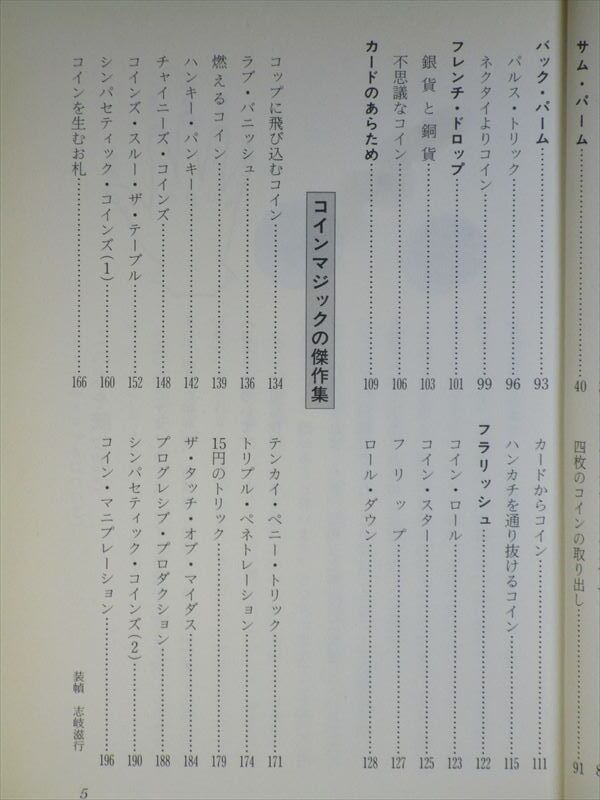 サム・パーム……40
四枚のコインの取り出し……91
バック・パーム……93
パルス・トリック……96
ネクタイよりコイン……99
フレンチ・ドロップ……101
銀貨と銅貨……103
不思議なコイン……106
カードのあらため……109
カードからコイン……111
ハンカチを通り抜けるコイン……115
フラリッシュ……122
コイン・ロール……123
コイン・スター……125
フリップ……127
ロール・ダウン……128
コインマジックの傑作集
コップに飛び込むコイン……134
ラブ・バニッシュ……136
燃えるコイン……139
ハンキー・パンキー……142
チャイニーズ・コインズ……148
コインズ・スルー・ザ・テーブル……152
シンパセティック・コインズ(1)……160
コインを生むお札……166
テンカイ・ペニー・トリック……171
トリプル・ペネトレーション……174
15円のトリック……179
ザ・タッチ・オブ・マイダス……184
プログレシブ・プロダクション……188
シンパセティック・コインズ(2)……190
コイン・マニプレーション……196
装幀 志岐滋行
5